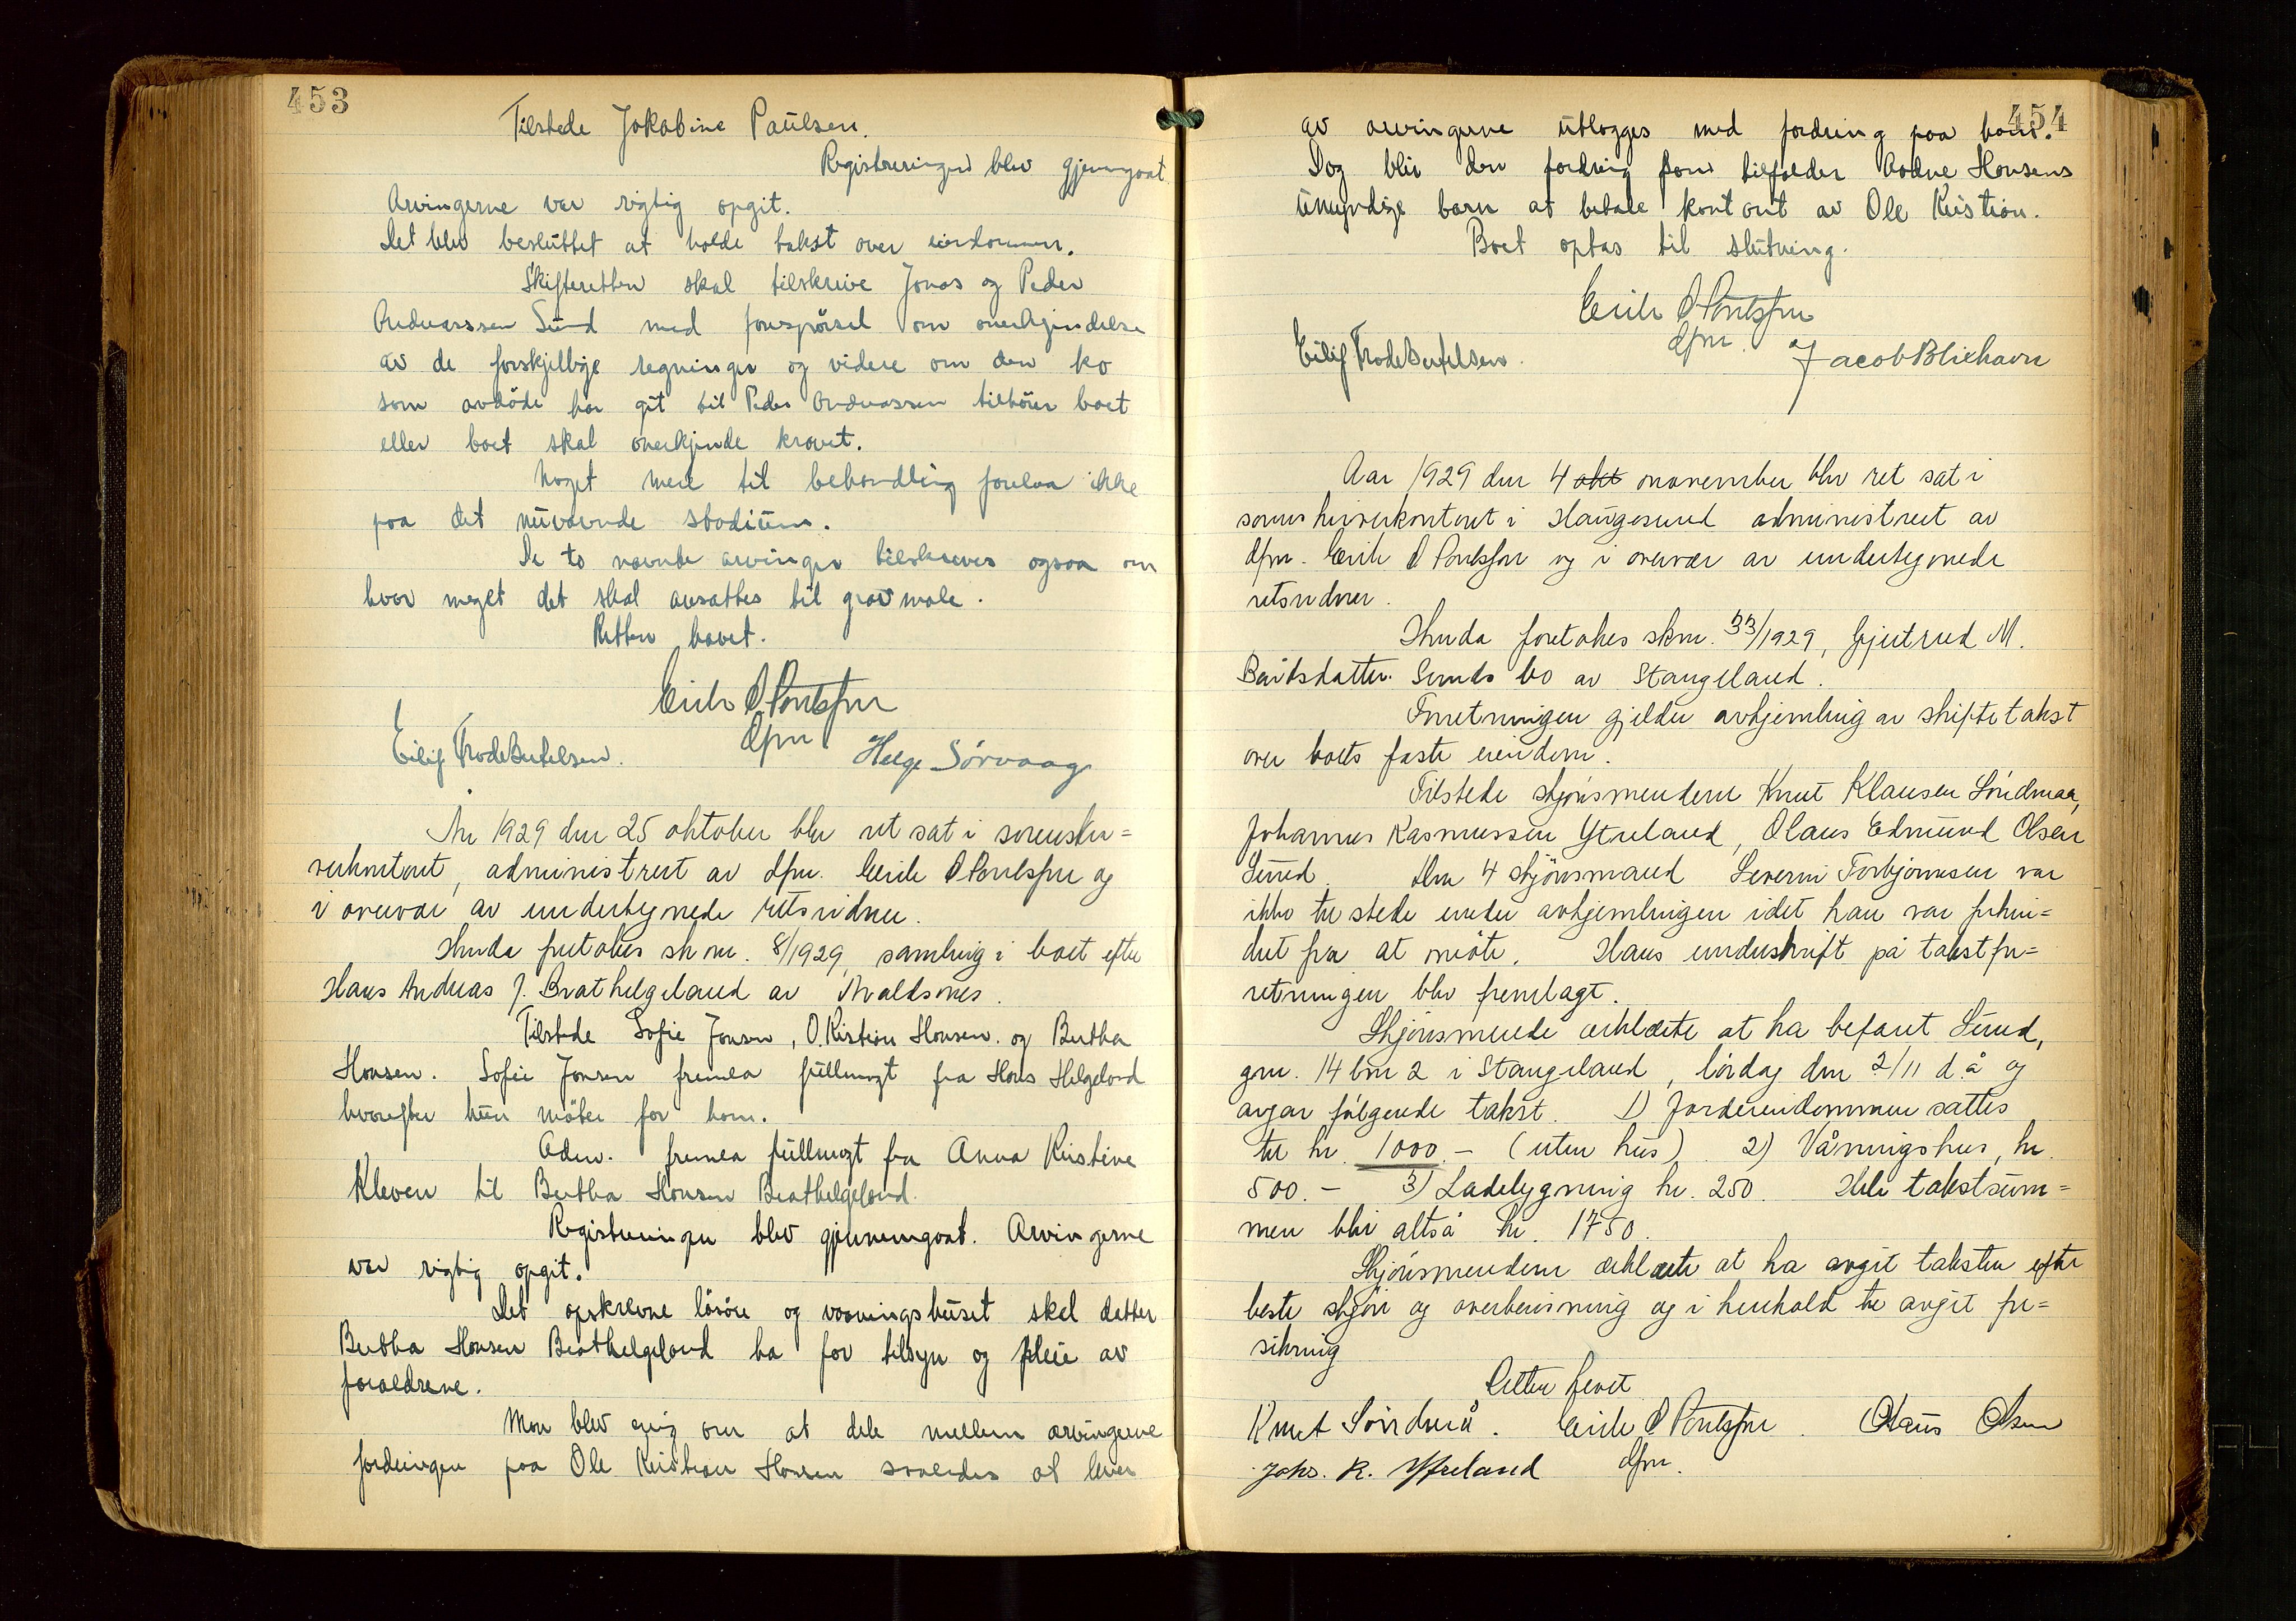 453
Tilstede Jakobine Paulsen.
Registreringen blev gjennemgaat
Arvingerne var rigtig opgit.
Det blev besluttet at holde takst over eiendommen.
Skifteretten skal tilskrive Jonas og Peder
Andreassen Sund med forespörsel om anerkjendelse
av de forskjellige regninger og videre om den ko
som avdöde har git til Peder Andreassen tilhörer boet
eller boet skal anerkjende kravet.
Noget mere til behandling forelaa ikke
paa det nuværende stadium.
De to nævnte arvinger tilskrives ogsaa om
hvor meget det skal avsættes til gravmæle.
Retten hævet.
Eirik
dfm
Eilif Frode Bertelsen. Helge Sörvaag
År 1929 den 25 oktober blev ret sat i sorenskri=
verkontoret, administrert av dfm. Eirik og
i overvær av undertegnede retsvidner.
Hvorda foretokes sk nr. 8/1929, samling i boet efter
Hans Andreas J. Brathelgeland av Avaldsnes.
Tilstede Sofie Jonsen, O. Kristian Hansen. og Bertha
Hansen. Sofie Jonsen fremla fullmagt fra Hans Helgeland
hvorefter hun möter for ham.
Adm. fremla fullmagt fra Anna Kristine
Kleven til Bertha Hansen Brathelgeland.
Registreringen blev gjennemgaat. Arvingerne
var rigtig opgit.
Det opskrevne lösöre og vaaningshuset skal datter
Bertha Hansen Brathelgeland ha for tilsyn og pleie av
forældrene.
Man blev enig om at dele mellem arvingerne
fordringen paa Ole Kristian Hansen saaledes at hver
454
av arvingerne utlægges med fordring paa ham.
Dog blir den fordring som tilfalder Aadne Hansens
umyndige barn at betale kontant av Ole Kristian.
Boet optas til slutning.
Eirik
dfm.
Eilif Frode Bertelsen. Jacob Bliehavn
Aar 1929 den 4 okt november blev ret sat i
sorenskriverkontoret i Haugesund administrert av
dfm. Eirik og i overvær av undertegnede
retsvidner.
Hvorda foretokes sknr. 33/1929, Gjertrud M.
Baardsdatter Sunds bo av Stangeland.
Forretningen gjelder avhjemling av skiftetakst
over boets faste eiendom.
Tilstede skjönsmendene Knut Klausen Söndmaa,
Johannes Rasmussen Ytreland, Olaus Edmund Olsen
Sund. Den 4 skjönsmand Severin Torbjörnsen var
ikke til stede under avhjemlingen idet han var forhin=
dret fra at möte. Hans underskrift på takstfor=
retningen blev fremlagt.
Skjönsmendene erklærte at ha befaret Sund,
gnr. 14 bnr 2 i Stangeland, lördag den 2/11 d.å og
avgav fölgende takst. 1) Jordeiendommen sattes
til kr. 1000.- (uten hus) 2) Våningshus, kr.
500.- 3) Ladebygning kr. 250. Hele takstsum=
men blir altså kr. 1750.
Skjönsmendene erklærte at ha avgit taksten efter
beste skjön og overbevisning og i henhold til avgit for=
sikring
Retten hevet
Knut Söndmå. Eirik Olaus Olsen
Johs. R. Ytreland dfm.